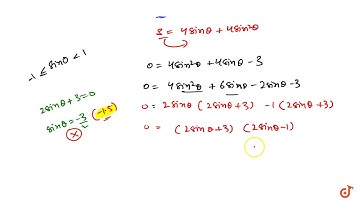 3 = 4sinθ + 4sin²θ
0 = 4sin²θ + 4sinθ - 3
0 = 4sin²θ + 6sinθ - 2sinθ - 3
0 = 2sinθ (2sinθ+3) -1 (2sinθ+3)
0 = (2sinθ+3) (2sinθ-1)
-1 ≤ sinθ < 1
2sinθ + 3 = 0
sinθ = -3/2 (-1.5)
doubtnut